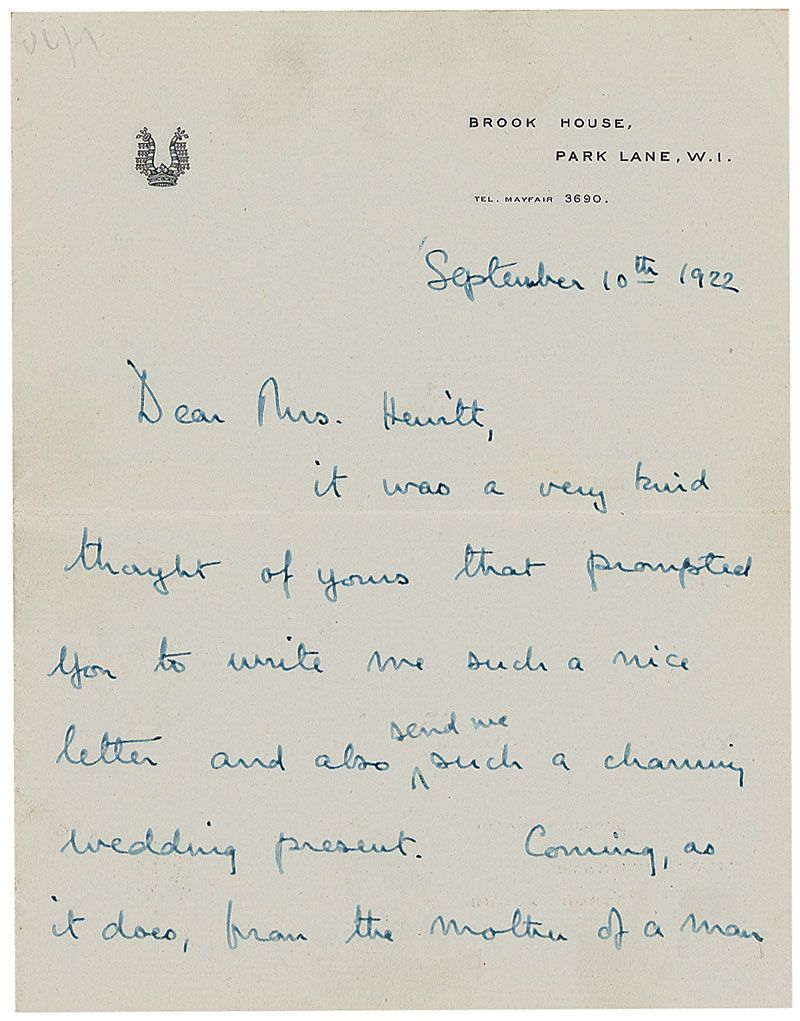 BROOK HOUSE,
PARK LANE, W.1.
TEL. MAYFAIR 3690.
September 10th 1922
Dear Mrs. Hewitt,
it was a very kind
thought of yours that prompted
you to write me such a nice
send me
letter and also ^ such a charming
wedding present. Coming, as
it does, from the mother of a man